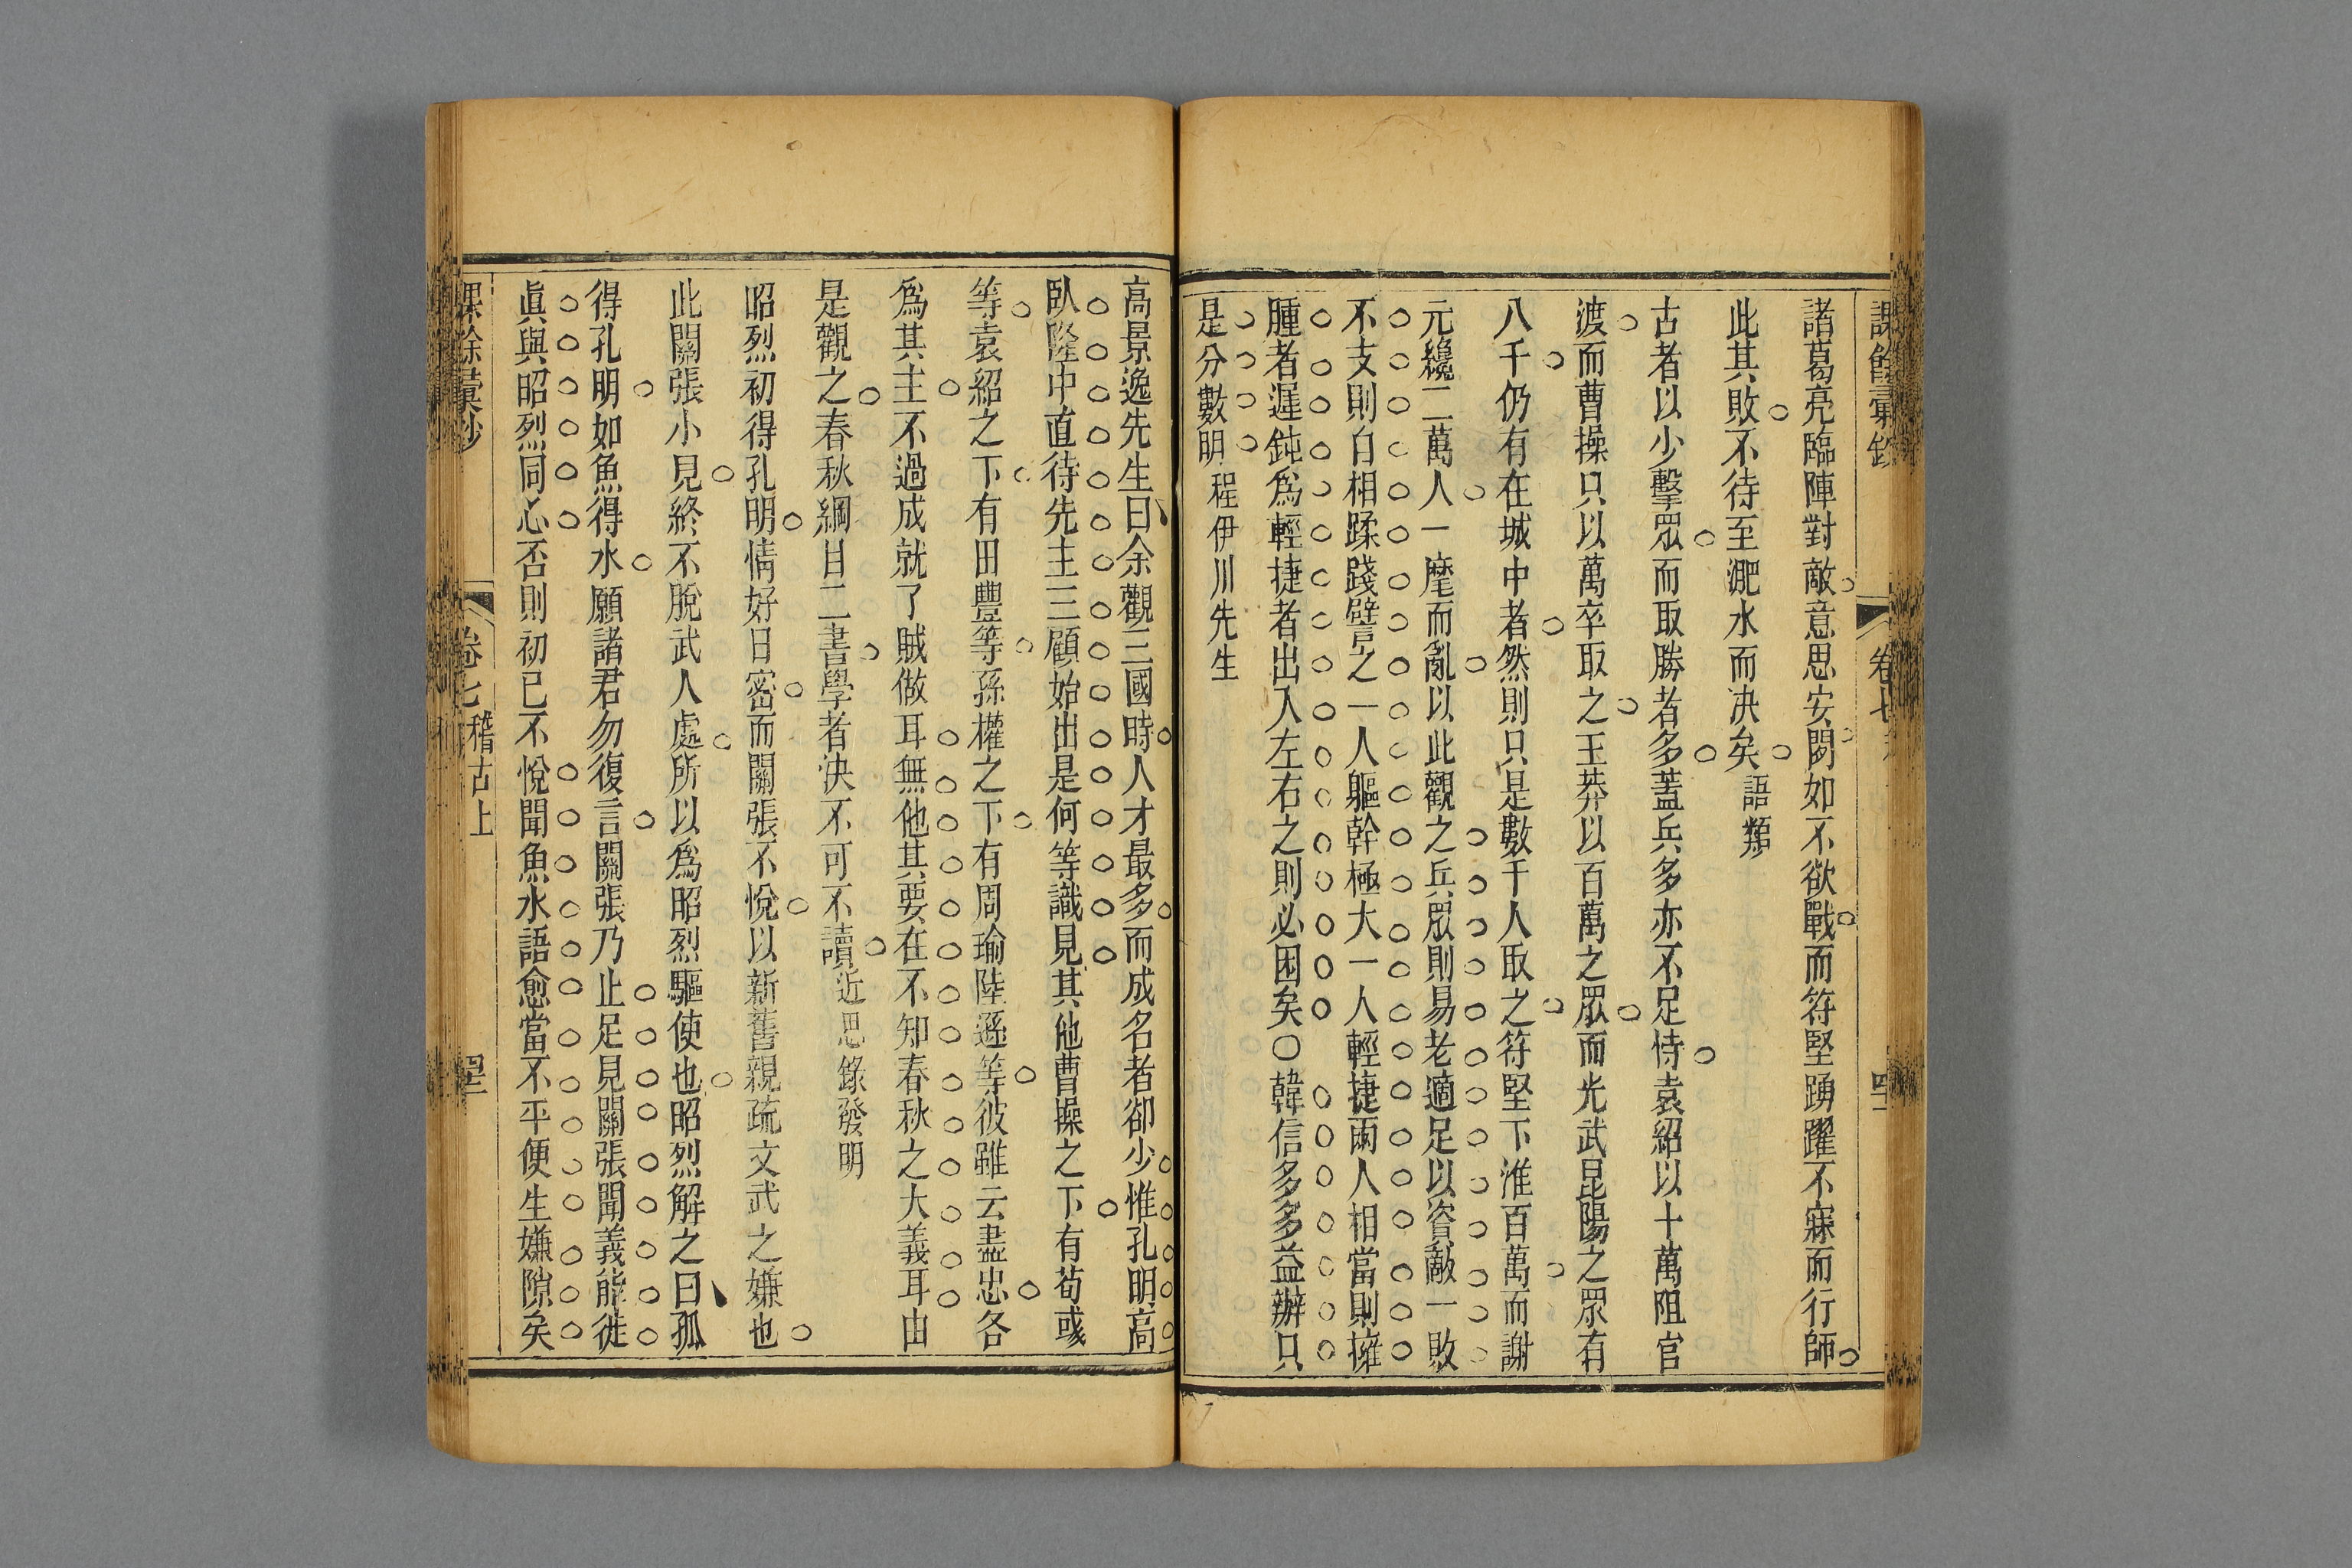 課餘彙鈔
卷七
諸葛亮臨陣對敵意思安閑如不欲戰而苻堅踴躍不寐而行師
此其敗不待至淝水而決矣 語類
古者以少擊眾而取勝者多蓋兵多亦不足恃袁紹以十萬阻官
渡而曹操只以萬卒取之王莽以百萬之眾而光武昆陽之眾有
八千仍有在城中者然則只是數千人取之苻堅下淮百萬而謝
元纔二萬人一麾而亂以此觀之兵眾則易老適足以資敵一敗
不支則自相蹂踐譬之一人軀幹極大一人輕捷兩人相當則擁
腫者遲鈍爲輕捷者出入左右之則必困矣〇韓信多多益辦只
是分數明 程伊川先生
高景逸先生曰余觀三國時人才最多而成名者卻少惟孔明高
臥隆中直待先主三顧始出是何等識見其他曹操之下有荀彧
等袁紹之下有田豐等孫權之下有周瑜陸遜等彼雖云盡忠各
爲其主不過成就了賊做耳無他其要在不知春秋之大義耳由
是觀之春秋綱目二書學者決不可不讀 近思錄發明
昭烈初得孔明情好日密而關張不悅以新舊親疏文武之嫌也
此關張小見終不脫武人處所以爲昭烈驅使也昭烈解之曰孤
得孔明如魚得水願諸君勿復言關張乃止足見關張聞義能徙
眞與昭烈同心否則初已不悅聞魚水語愈當不平便生嫌隙矣
課餘彙鈔
卷七 稽古上